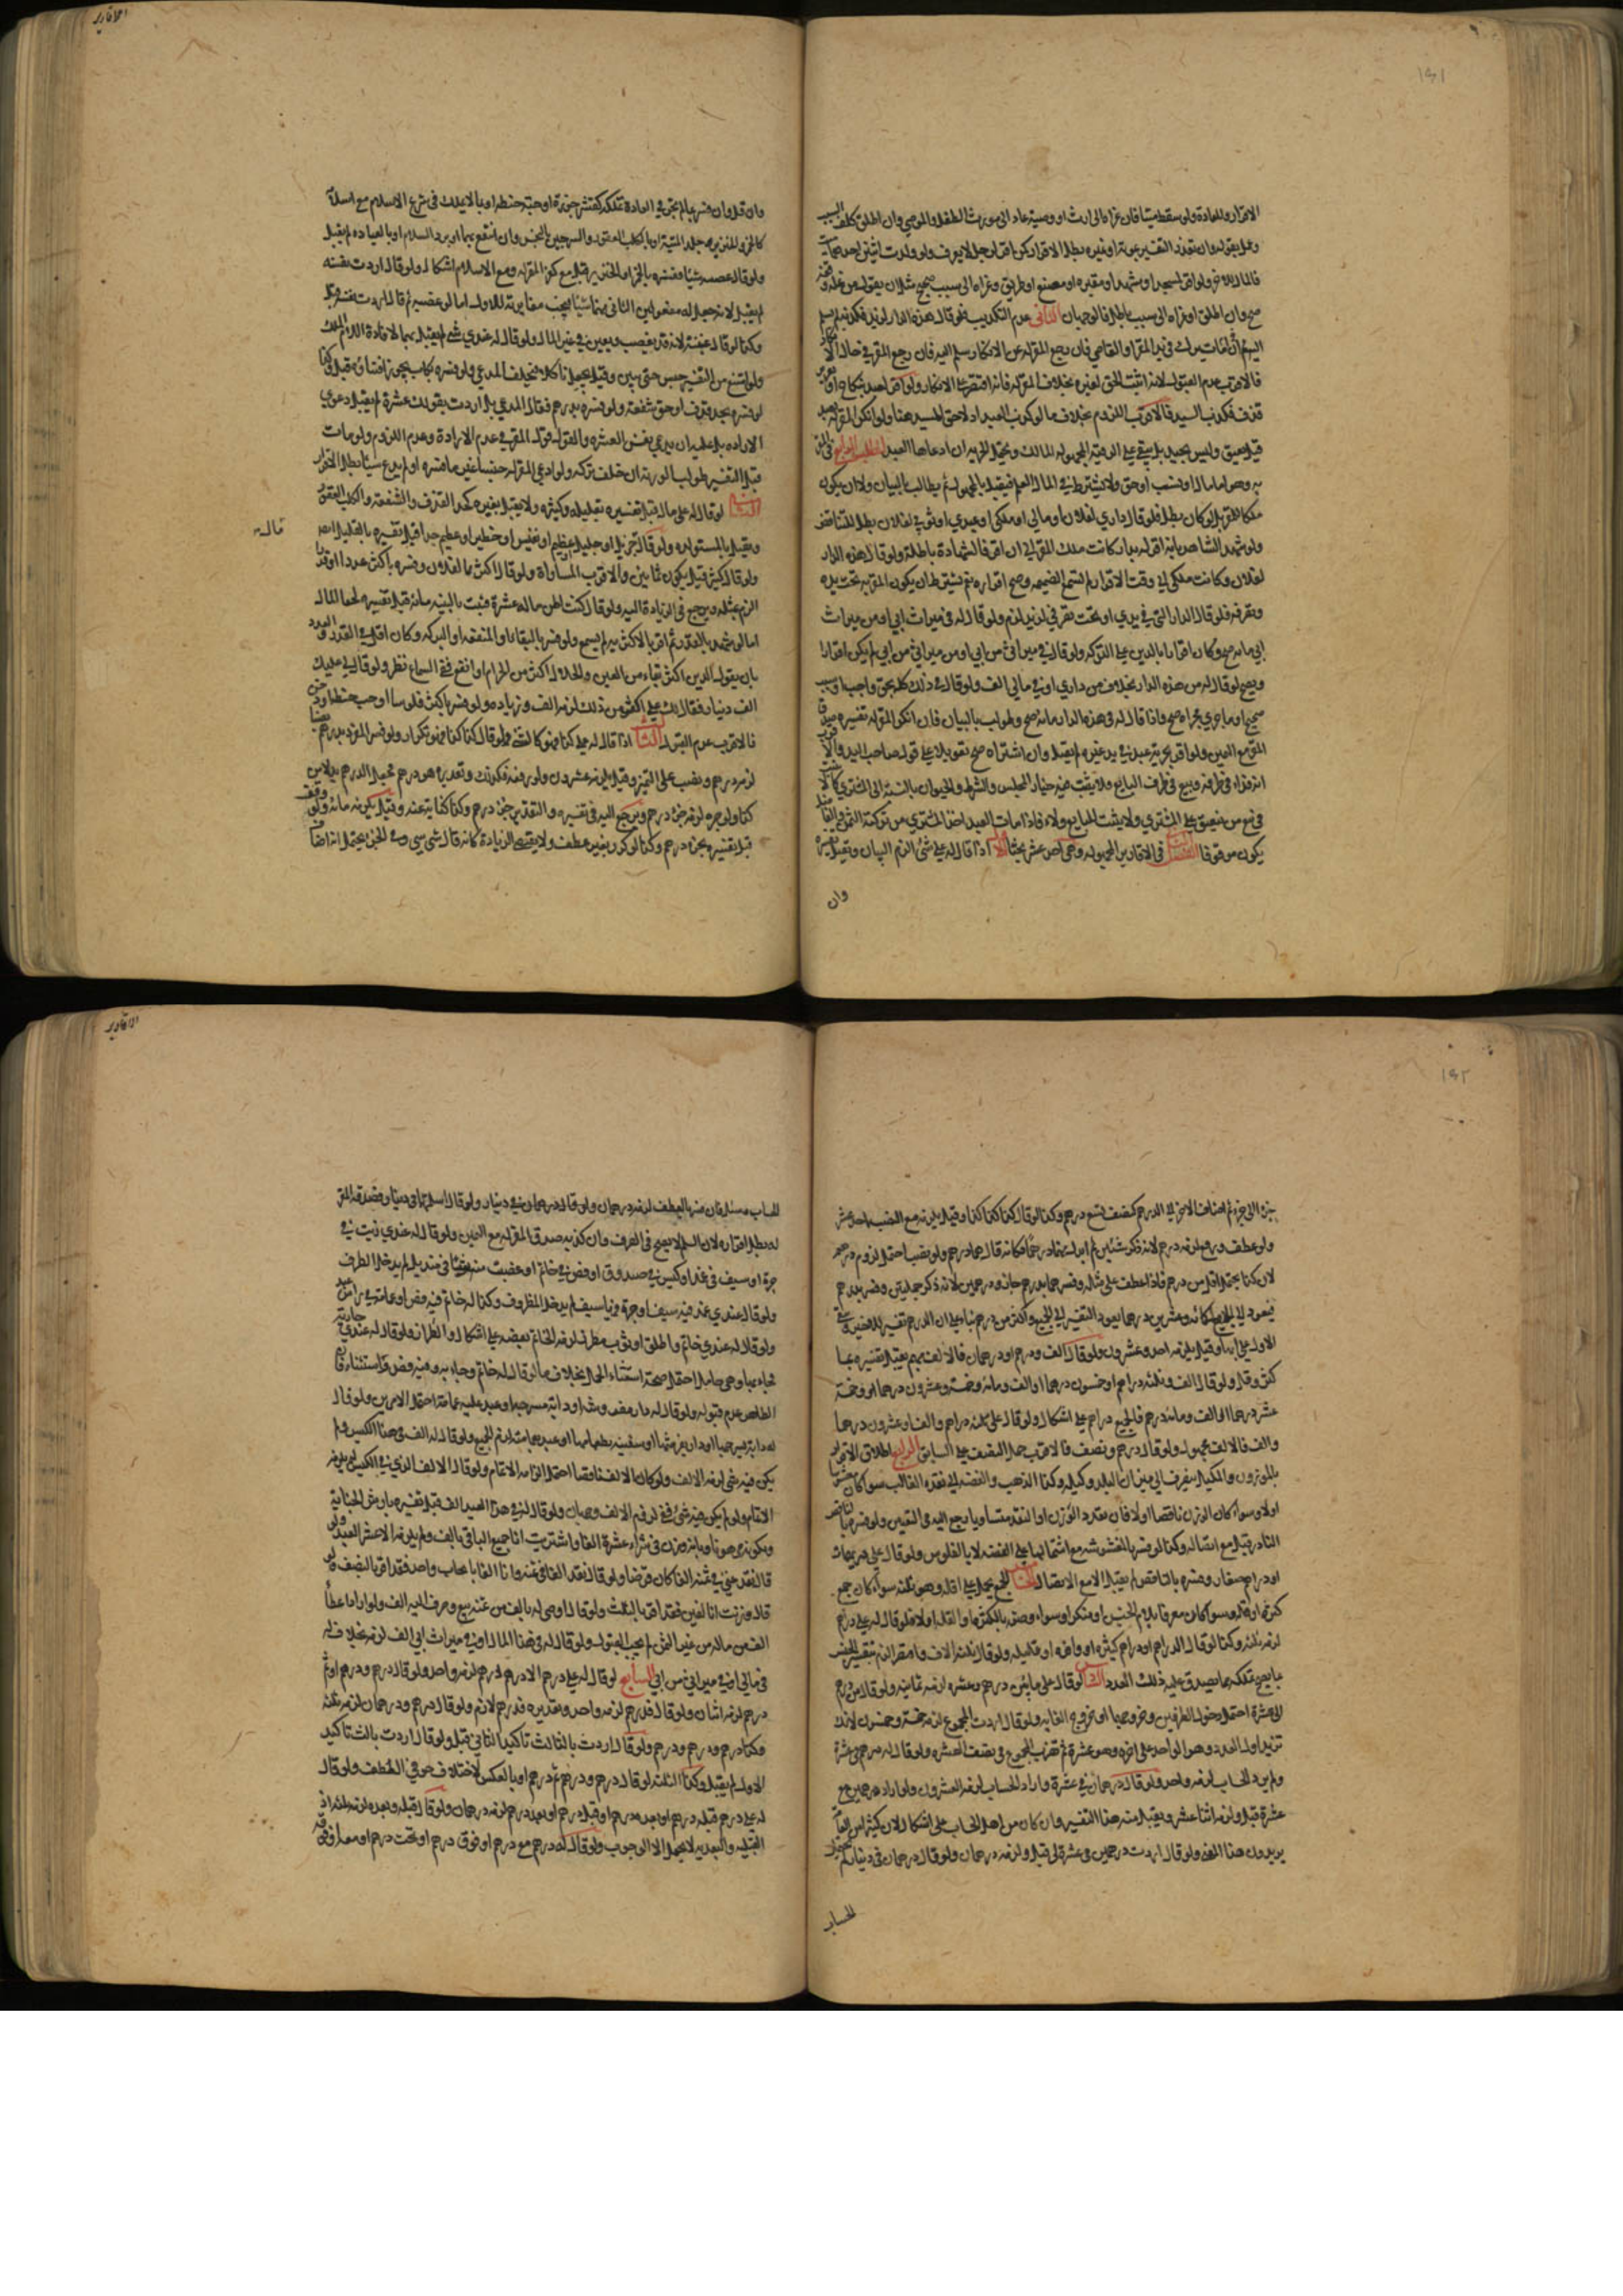 ١٤١
الاقرار وللمادة ولو سقط ميتا فان عزاه الى ارث او وصية عاد الى مورث الطفل والموصي وان اطلق كلف السبب
وعمل بقوله وان تعذر التفسير بموته او غيره بطل الاقرار كمن اقر لرجل لا يعرف ولو ولدت اثنين احدهما ميت
فالمال للاخر ولو اقر لمسجد او مشهد او مقبرة او مصنع او طريق وعزاه الى سبب صحيح مثل ان يقول من غلة وقفه
صح وان اطلق او عزاه الى سبب باطل فالوجهان الثاني عدم التكذيب فلو قال هذه الدار لزيد فكذبه لم يسلم
اليه ثم اما ان يترك في يد المقر او القاضي فان رجع المقر له عن الانكار سلم اليه فان رجع المقر في حال انكار
فالاقرب عدم القبول لانه اثبت الحق لغيره بخلاف المقر له فانه اقتصر على الانكار ولو اقر لعبد بنكاح او تعزير
قذف فكذب السيد فالاقرب اللزوم بخلاف ما لو كذب العبد اذ لا حق للسيد هنا ولو انكر المقر له بعبد
قيل يعتق وليس بجيد بل يبقى على الرقية المجهولة المالك ويحتمل الحرية ان ادعاها العبد المطلب الرابع في المقر
به وهو اما مال او نسب او حق ولا يشترط في المال العلم فيقبل بالمجهول ثم يطالب بالبيان ولا ان يكون
ملكا للمقر بل لو كان بطل فلو قال داري لفلان او مالي او ملكي او عبدي او ثوبي لفلان بطل للتناقض
ولو شهد الشاهد بانه اقر له بدار كانت ملك المقر الى ان اقر فالشهادة باطلة ولو قال هذه الدار
لفلان وكانت ملكي الى وقت الاقرار لم تسمع الضميمة وصح اقراره نعم يشترط ان يكون المقر به تحت يده
وتصرفه فلو قال الدار التي في يدي او تحت تصرفي لزيد لزم ولو قال له في ميراث ابي او من ميراث
ابي مائة صح وكان اقرارا بالدين على التركة ولو قال في ميراثي من ابي او من ميراثي من ابي لم يكن اقرارا
ويصح لو قال له من هذه الدار بخلاف من داري او في مالي الف ولو قال في ذلك كله بحق واجب او بسبب
صحيح او ما جرى مجراه صح واذا قال له في هذه الدار مائة صح وطولب بالبيان فان انكر المقر له تفسيره صدق
المقر مع اليمين ولو اقر بحرية عبد في يد غيره لم يقبل وان اشتراه صح تعويلا على قول صاحب اليد والاقرب
انه فداء في طرفه وبيع في طرف البايع ولا يثبت فيه خيار المجلس والشرط والحيوان بالنسبة الى المشتري
فيعتق على المشتري ولا يثبت للبايع ولاء فاذا مات العبد اخذ المشتري من تركته الثمن والفاضل
يكون موقوفا الفصل الثاني في الاقارير المجهولة وهي احد عشر بحثا الاول اذا قال له علي شيء الزم البيان وتقبل تفسيره
وان
الاقارير
وان قل وان فسر بما لم تجر في العادة تملكه كقشر جوزة او حبة حنطة او بما لا يملك في شرع الاسلام مع اسلامه
كالخمر والخنزير وجلد الميتة او بالكلب العقور والسرجين النجس وان انتفع بهما او برد السلام او بالعيادة لم يقبل
ولو قال غصبه شيئا وفسره بالخمر او الخنزير قبل مع كفر المقر له ومع الاسلام اشكال ولو قال اردت نفسه
لم يقبل لانه جعل له مفعولين الثاني منهما شيئا فيجب مغايرته للاول اما لو غصبته ثم قال اردت نفسه قبل
وكذا لو قال غبنته لانه قد يغصب ويغبن في غير المال ولو قال له عندي شيء لم يقبل بهما لافادة اللام الملك
ولو امتنع من التفسير حبس حتى يبين وقيل يجعل ناكلا فيحلف المدعي ولو فسره بكلب يجوز اقتناؤه قبل وكذا
لو فسره بحد قذف او حق شفعة ولو فسره بدرهم فقال المدعي بل اردت بقولك عشرة لم يقبل دعوى
الارادة بل عليه ان يدعي بنفس العشرة والقول قول المقر في عدم الارادة وعدم اللزوم ولو مات
قبل التفسير طولب الورثة ان خلف تركة ولو ادعى المقر له جنسا غير ما فسره او لم يدع شيئا بطل الاقرار
الثاني لو قال له علي مال قبل تفسيره بقليله وكثيره ولا يقبل بغيره كحد القذف والشفعة والكلب العقور
ويقبل بالمستولدة ولو قال جزيل او جليل او عظيم او نفيس او خطير او عظيم جدا قبل تفسيره بالقليل ايضا
قاله
ولو قال كثير قيل يكون ثمانين والاقرب المساواة ولو قال اكثر مال فلان وفسره باكثر عددا او قدرا
الزم بمثله ويرجع في الزيادة اليه ولو قال كنت اظن ماله عشرة فثبت بالبينة مائة قبل تفسيره لخفاء المال
اما لو شهد بالقدر ثم اقر بالاكثرية لم يسمع ولو فسر بالبقاء او المنفعة او البركة وكان اقل في القدر والعدد
بان يقول الدين اكثر بقاء من العين والحلال اكثر من الحرام او انفع ففي السماع نظر ولو قال لي عليك
الف دينار فقال لك علي اكثر من ذلك لزمه الف وزيادة ولو فسر باكثر فلوسا او حب حنطة او دخن
فالاقرب عدم القبول الثالث اذا قال له علي كذا فهو كالشيء ولو قال كذا كذا فهو تكرار ولو فسر المفرد بدرهم نصبا
لزمه درهم ونصب على التمييز وقيل يلزمه عشرون ولو رفعه فكذلك وتقديره هو درهم فجعل الدرهم بدلا من
كذا ولو جره لزمه جزء درهم ويرجع اليه في تفسيره والتقدير جزء درهم وكذا كناية عنه وقيل يلزمه مائة ولو وقف
قبل تفسيره بجزء درهم وكذا لو كرر بغير عطف ولا يقتضي الزيادة كانه قال شيء شيء وفي الجر يحتمل انه اضاف
١٤٢
جزءا الى جزء ثم اضاف الاخير الى الدرهم كنصف تسع درهم وكذا لو قال كذا كذا كذا وقيل يلزمه مع النصب احد عشر
ولو عطف ورفع لزمه درهم لانه ذكر شيئين ثم ابدل منهما درهما فكانه قال هما درهم ولو نصب احتمل لزوم درهم
لان كذا يحتمل اقل من درهم فاذا عطف على مثله وفسرهما بدرهم جاز ودرهمين لانه ذكر جملتين وفسر بدرهم
فيعود الى الجميع كمائة وعشرين درهما يعود التفسير الى الجميع واكثر من درهم بناء على ان الدرهم تفسير للاخير وبقي
الاول على ابهامه وقيل يلزمه احد وعشرون ولو قال الف ودرهم او درهمان فالالف مبهم يقبل تفسيره بما
كثر وقل ولو قال الف وثلثة دراهم او خمسون درهما او الف ومائة وخمسة وعشرون درهما او وخمسة
عشر درهما او الف ومائة درهم فالجميع دراهم على اشكال ولو قال علي ثلثة دراهم والف او عشرون درهما
والف فالالف مجهول ولو قال درهم ونصف فالاقرب حمل النصف على السابق الرابع اطلاق الاقرار
بالموزون والمكيل ينصرف الى ميزان البلد وكيله وكذا الذهب والفضة الى نقده الغالب سواء كان مغشوشا
اولا وسواء كان الوزن ناقصا اولا فان تعدد الوزن او النقد متساويا رجع اليه في التعيين ولو فسر بالناقص
النادر قبل مع اتصاله وكذا لو فسر بالمغشوشة مع اشتمالها على الفضة لا بالفلوس ولو قال علي دريهمات
او دراهم صغار وفسره بالناقص لم يقبل الا مع الاتصال الخامس الجمع يحمل على اقله وهو ثلثة سواء كان جمع
كثرة او قلة وسواء كان معرفا بلام الجنس او منكرا وسواء وصفه بالكثرة او القلة اولا فلو قال له علي دراهم
لزمه ثلثة وكذا لو قال الدراهم او دراهم كثيرة او وافرة او قليلة ولو قال ثلثة الاف واقتصر الزم بتفسير الجنس
بما يصح تملكه مما يصدق عليه ذلك العدد السادس لو قال علي ما بين درهم وعشرة لزمه ثمانية ولو قال من درهم
الى عشرة احتمل دخول الطرفين وخروجهما او خروج الغاية ولو قال اردت المجموع لزمه خمسة وخمسون لانك
تزيد اول العدد وهو الواحد على اخره وهو عشرة ثم تضرب المجموع في نصف العشرة ولو قال له درهم في عشرة
ولم يرد الحساب لزمه واحد ولو قال درهمان في عشرة واراد الحساب لزمه العشرون ولو اراد درهمين مع
عشرة قبل ولزمه اثنا عشر ويقبل منه هذا التفسير وان كان من اهل الحساب على اشكال لان كثيرا من العامة
يريدون هذا المعنى ولو قال اردت درهمين في عشرة لي قبل ولزمه درهمان ولو قال درهمان في دينار لم يحتمل
الحساب
الاقارير
الحساب وسئل فان فسر بالعطف لزمه درهمان ودينار ولو قال اسلمتهما في دينار فصدقه المقر
له بطل اقراره لان السلم لا يصح في الصرف وان كذبه صدق المقر له مع اليمين ولو قال له عندي زيت في
جرة او سيف في غمد او كيس في صندوق او فص في خاتم او غصبت منه ثوبا في منديل لم يدخل الظرف
ولو قال عندي غمد فيه سيف او جرة فيها زيت لم يدخل المظروف وكذا له خاتم فيه فص او عمامة في راس عبد
ولو قال له عندي خاتم واطلق او ثوب مطرز لزمه الخاتم بفصه على اشكال والطراز ولو قال له عندي جارية
فجاء بها وهي حامل احتمل صحة استثناء الحمل بخلاف ما لو قال له خاتم وجاء به وفيه فص واستثناه فان
الظاهر عدم قبوله ولو قال له دار مفروشة او دابة مسرجة او عبد عليه عمامة احتمل الامرين ولو قال
له دابة بسرجها او دار بفرشها او سفينة بطعامها او عبد بعمامته لزم الجميع ولو قال له الف في هذا الكيس ولم
يكن فيه شيء لزمه الالف ولو كان الالف ناقصا احتمل الزامه الاتمام ولو قال الالف الذي في الكيس لم يلزمه
الاتمام ولو لم يكن فيه شيء ففي لزوم الالف وجهان ولو قال له في هذا العبد الف قبل تفسيره بارش الجناية
وبكونه مرهونا وبانه وزن في شراء عشره الفا واشتريت انا جميع الباقي بالف ولم يلزمه الا عشر العبد ولو
قال نقد عني في ثمنه الفا كان قرضا ولو قال نقد الفا في ثمنه وانا الفا بايجاب واحد فقد اقر بالنصف فان
قال وزنت انا الفين فقد اقر بالثلث ولو قال اوصى له بالف من ثمنه بيع وصرف اليه الف ولو اراد اعطاء
الف من ماله من غير الثمن لم يجب القبول ولو قال له في هذا المال او في ميراث ابي الف لزمه بخلاف له
في مالي او في ميراثي من ابي السابع لو قال له علي درهم الا درهم درهم لزمه واحد ولو قال درهم ودرهم او ثم
درهم لزمه اثنان ولو قال فدرهم لزمه واحد وتقديره فدرهم لازم ولو قال درهم ودرهمان لزمه ثلثة
وكذا درهم ودرهم ودرهم ولو قال اردت بالثالث تاكيد الثاني قبل ولو قال اردت بالثالث تاكيد
الاول لم يقبل وكذا الثلثة لو قال درهم ودرهم ثم درهم او بالعكس لاختلاف حرفي العطف ولو قال
له علي درهم قبله درهم او بعده درهم او قبل درهم او بعد درهم لزمه درهمان ولو قال قبله وبعده لزمه ثلثة اذ
القبلية والبعدية لا يحتمل الا الوجوب ولو قال له درهم مع درهم او فوق درهم او تحت درهم او معه او فوقه